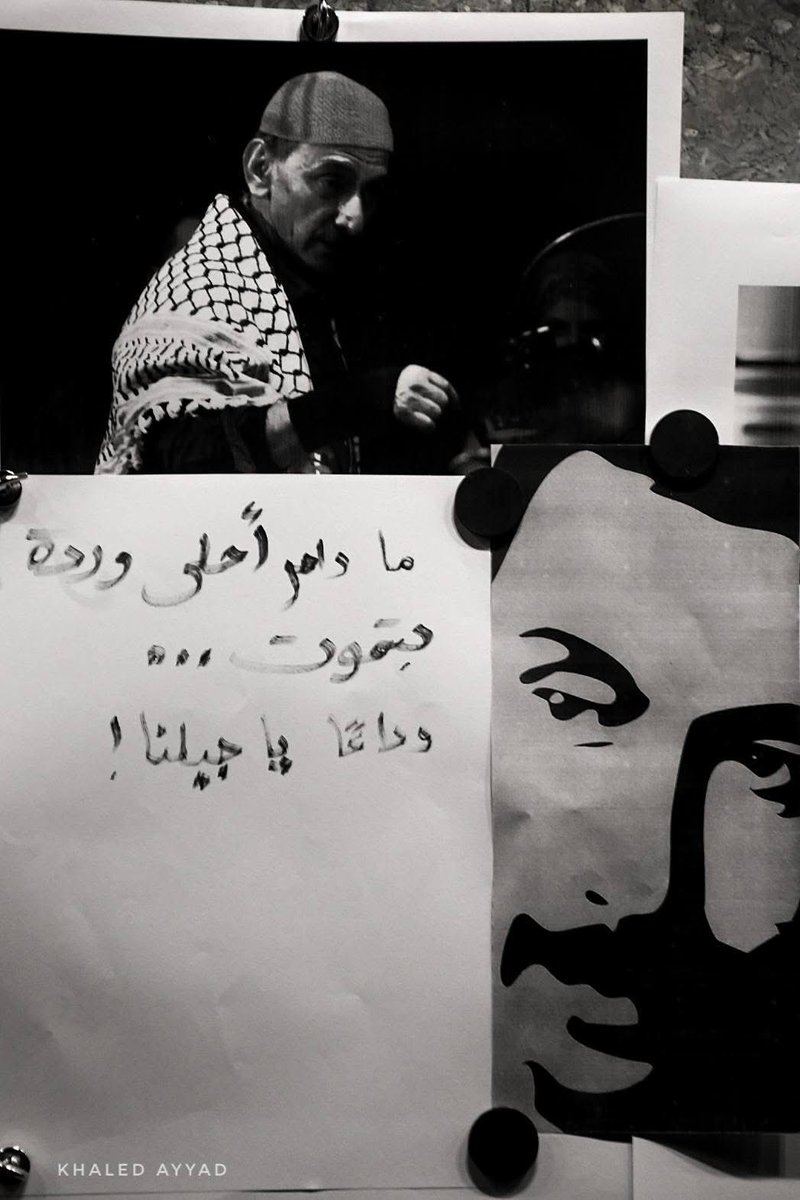 ما دام أحلى وردة
بتموت ...
وداعًا يا جيلنا !
KHALED AYYAD